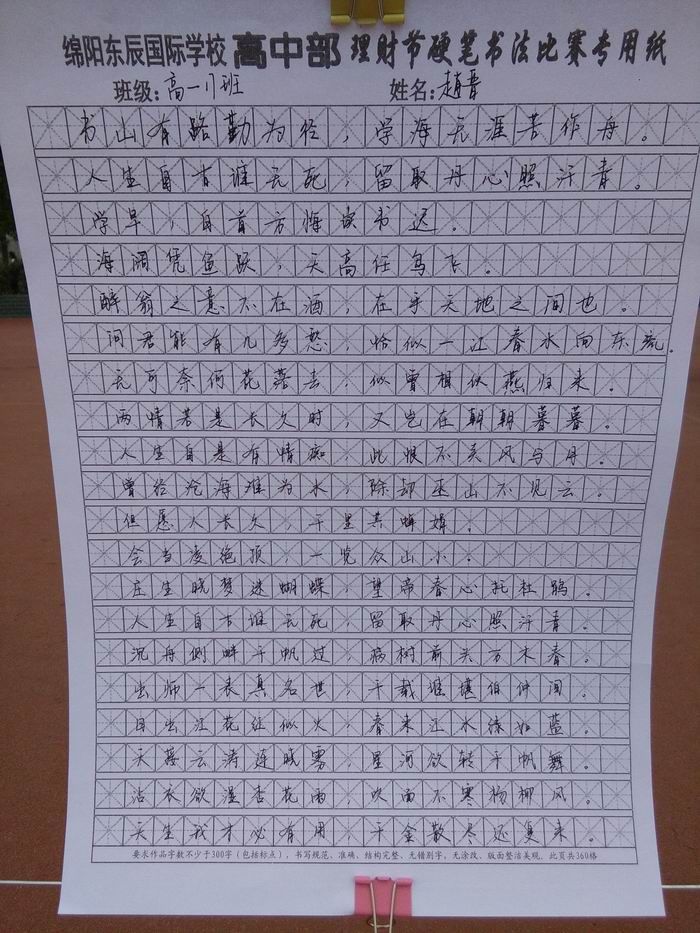 绵阳东辰国际学校 高中部 理财节硬笔书法比赛专用纸
班级：高一11班 姓名：赵晋
书山有路勤为径，学海无涯苦作舟。
人生自古谁无死，留取丹心照汗青。
学早，白首方悔读书迟。
海阔凭鱼跃，天高任鸟飞。
醉翁之意不在酒，在乎天地之间也。
问君能有几多愁，恰似一江春水向东流。
无可奈何花落去，似曾相似燕归来。
两情若是长久时，又岂在朝朝暮暮。
人生自是有情痴，此恨不关风与月。
曾经沧海难为水，除却巫山不见云。
但愿人长久，千里共婵娟。
会当凌绝顶，一览众山小。
庄生晓梦迷蝴蝶，望帝春心托杜鹃。
人生自古谁无死，留取丹心照汗青。
沉舟侧畔千帆过，病树前头万木春。
出师一表真名世，千载谁堪伯仲间。
日出江花红似火，春来江水绿如蓝。
天接云涛连晓雾，星河欲转千帆舞。
沾衣欲湿杏花雨，吹面不寒杨柳风。
天生我才必有用，千金散尽还复来。
要求作品字数不少于300字（包括标点），书写规范、准确、结构完整、无错别字，无涂改、版面整洁美观。此页共360格